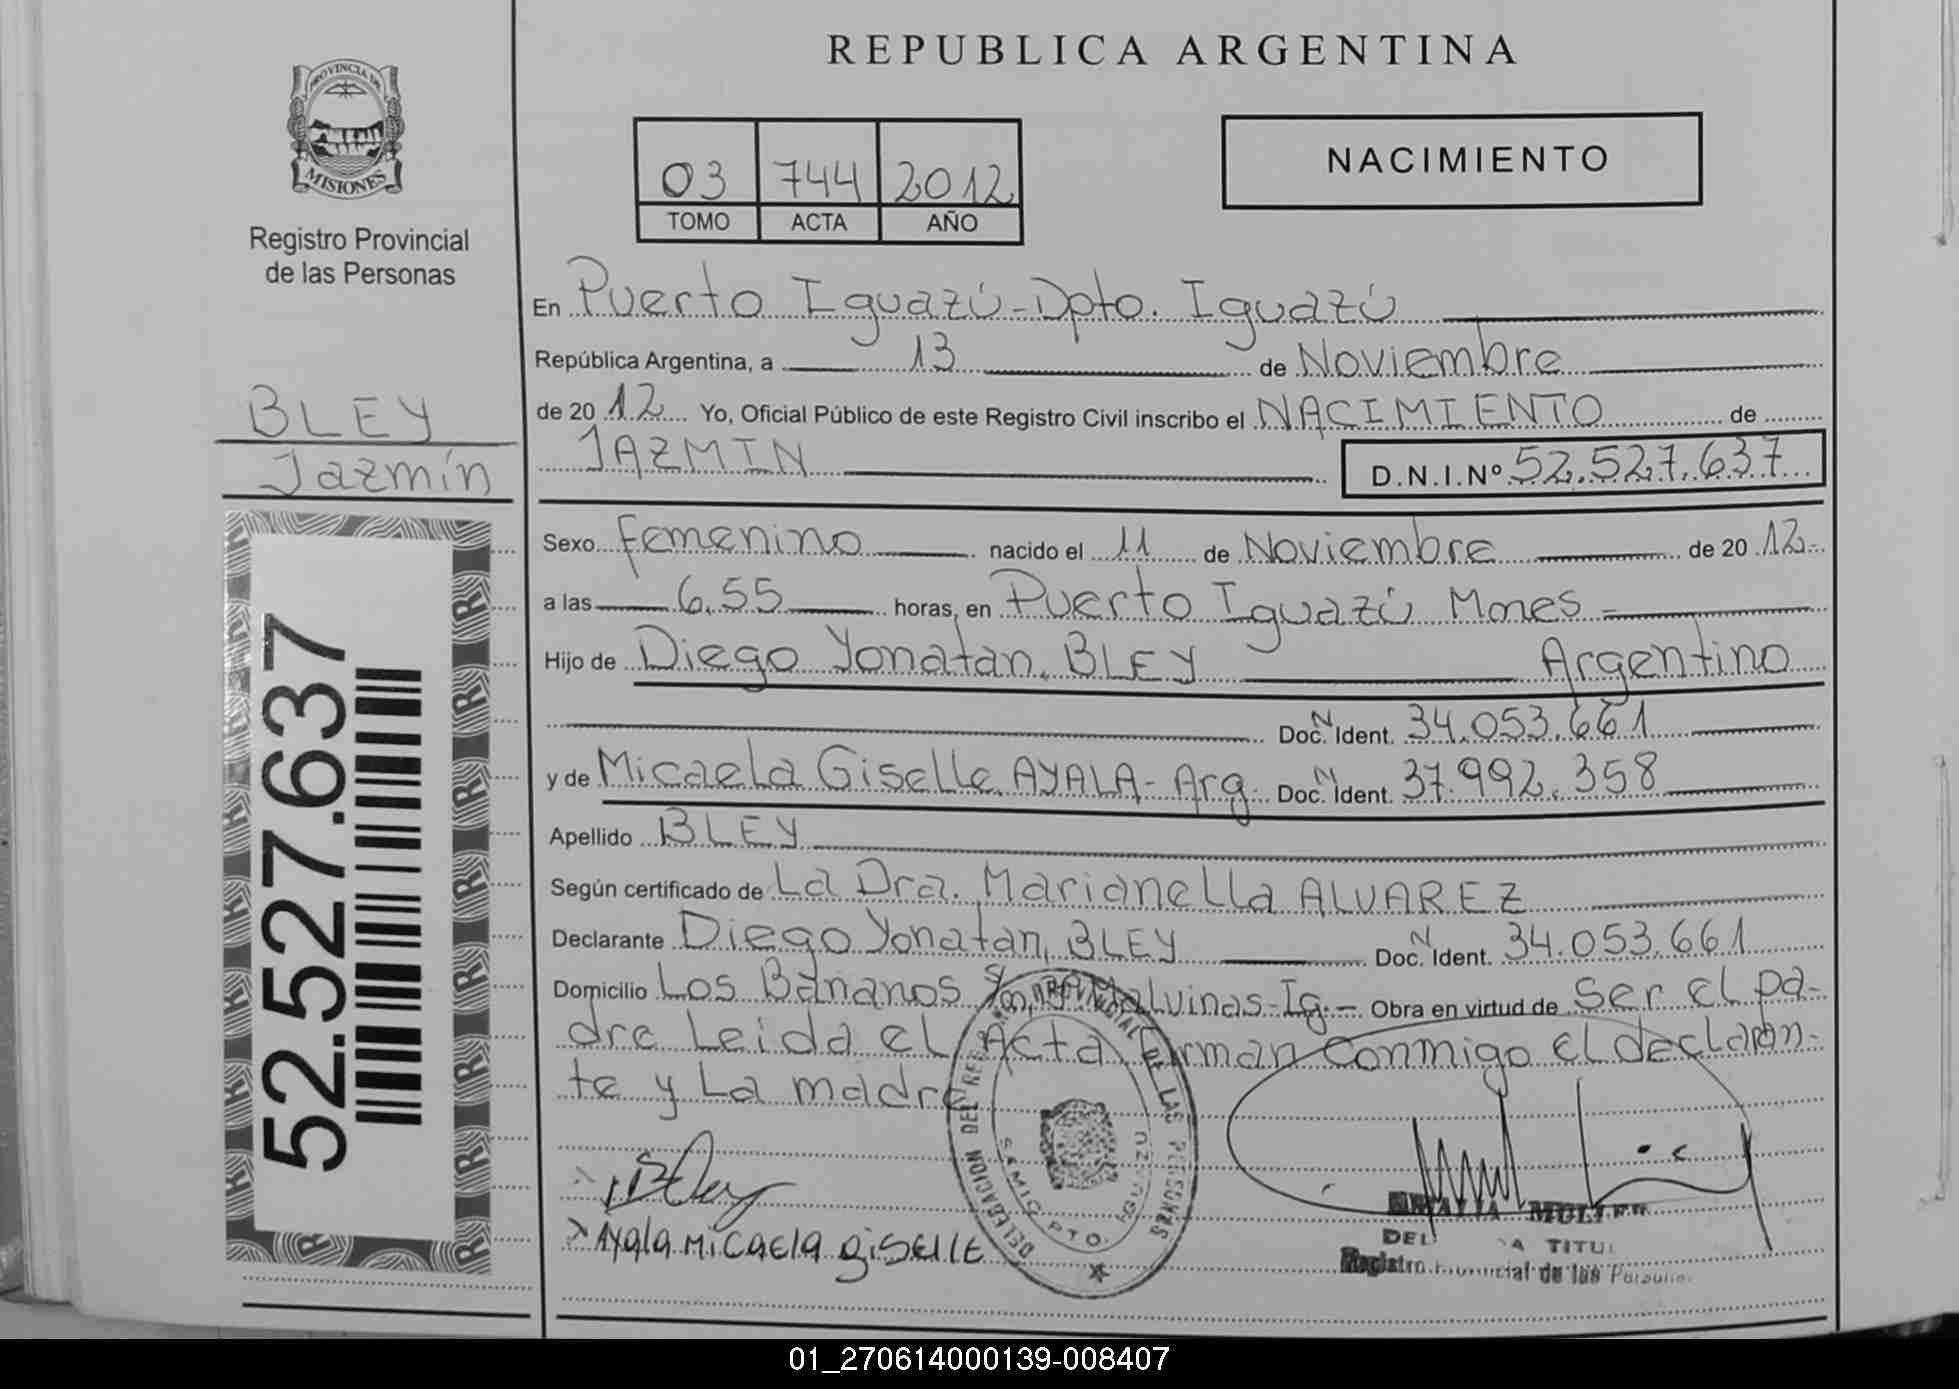 PROVINCIA DE
MISIONES
Registro Provincial
de las Personas
BLEY
Jazmín
52.527.637
REPUBLICA ARGENTINA
03 744 2012
TOMO ACTA AÑO
NACIMIENTO
En Puerto Iguazú-Dpto. Iguazú
República Argentina, a 13 de Noviembre
de 2012 Yo, Oficial Público de este Registro Civil inscribo el NACIMIENTO de
JAZMIN D.N.I.Nº 52.527.637
Sexo femenino nacido el 11 de Noviembre de 2012-
a las 6,55 horas, en Puerto Iguazú Mones
Hijo de Diego Yonatan, BLEY Argentino
Doc. N Ident. 34.053.661
y de Micaela Giselle AYALA- Arg. Doc. N Ident. 37.992.358
Apellido BLEY
Según certificado de La Dra. Marianella ALVAREZ
Declarante Diego Yonatan, BLEY Doc. N Ident. 34.053.661
Domicilio Los Bananos S/n, Malvinas-Ig.- Obra en virtud de Ser el pa-
dre Leida el Acta firman conmigo el declaran-
te y La madre
Bley
Ayala Micaela giselle
DELEGACION DEL REG. PROVINCIAL DE LAS PERSONAS
PTO. IGUAZU
MULLER
TITU
Registro Provincial de las Personas
01_270614000139-008407